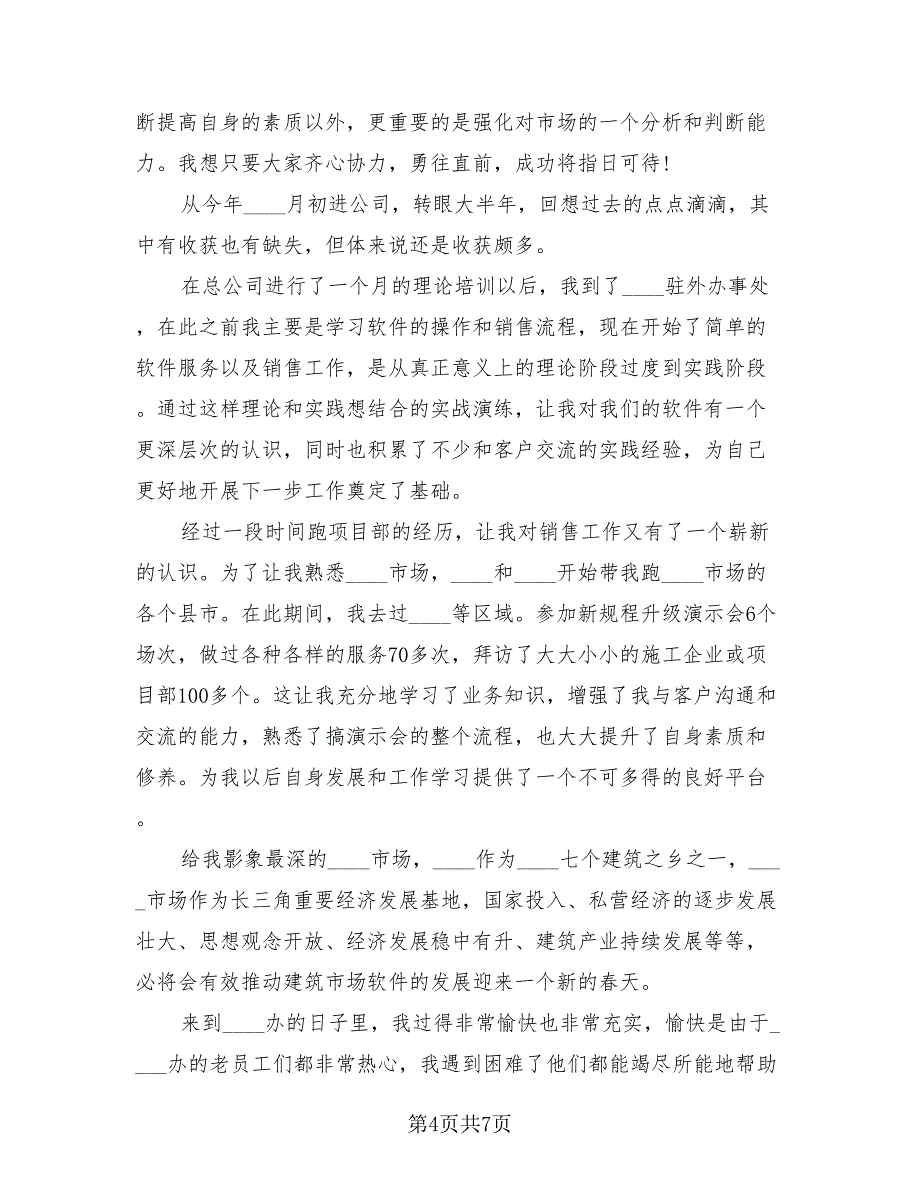 断提高自身的素质以外，更重要的是强化对市场的一个分析和判断能
力。我想只要大家齐心协力，勇往直前，成功将指日可待!
从今年____月初进公司，转眼大半年，回想过去的点点滴滴，其
中有收获也有缺失，但体来说还是收获颇多。
在总公司进行了一个月的理论培训以后，我到了____驻外办事处
，在此之前我主要是学习软件的操作和销售流程，现在开始了简单的
软件服务以及销售工作，是从真正意义上的理论阶段过度到实践阶段
。通过这样理论和实践想结合的实战演练，让我对我们的软件有一个
更深层次的认识，同时也积累了不少和客户交流的实践经验，为自己
更好地开展下一步工作奠定了基础。
经过一段时间跑项目部的经历，让我对销售工作又有了一个崭新
的认识。为了让我熟悉____市场，____和____开始带我跑____市场的
各个县市。在此期间，我去过____等区域。参加新规程升级演示会6个
场次，做过各种各样的服务70多次，拜访了大大小小的施工企业或项
目部100多个。这让我充分地学习了业务知识，增强了我与客户沟通和
交流的能力，熟悉了搞演示会的整个流程，也大大提升了自身素质和
修养。为我以后自身发展和工作学习提供了一个不可多得的良好平台
。
给我影象最深的____市场，____作为____七个建筑之乡之一，___
_市场作为长三角重要经济发展基地，国家投入、私营经济的逐步发展
壮大、思想观念开放、经济发展稳中有升、建筑产业持续发展等等，
必将会有效推动建筑市场软件的发展迎来一个新的春天。
来到____办的日子里，我过得非常愉快也非常充实，愉快是由于_
___办的老员工们都非常热心，我遇到困难了他们都能竭尽所能地帮助
第4页共7页